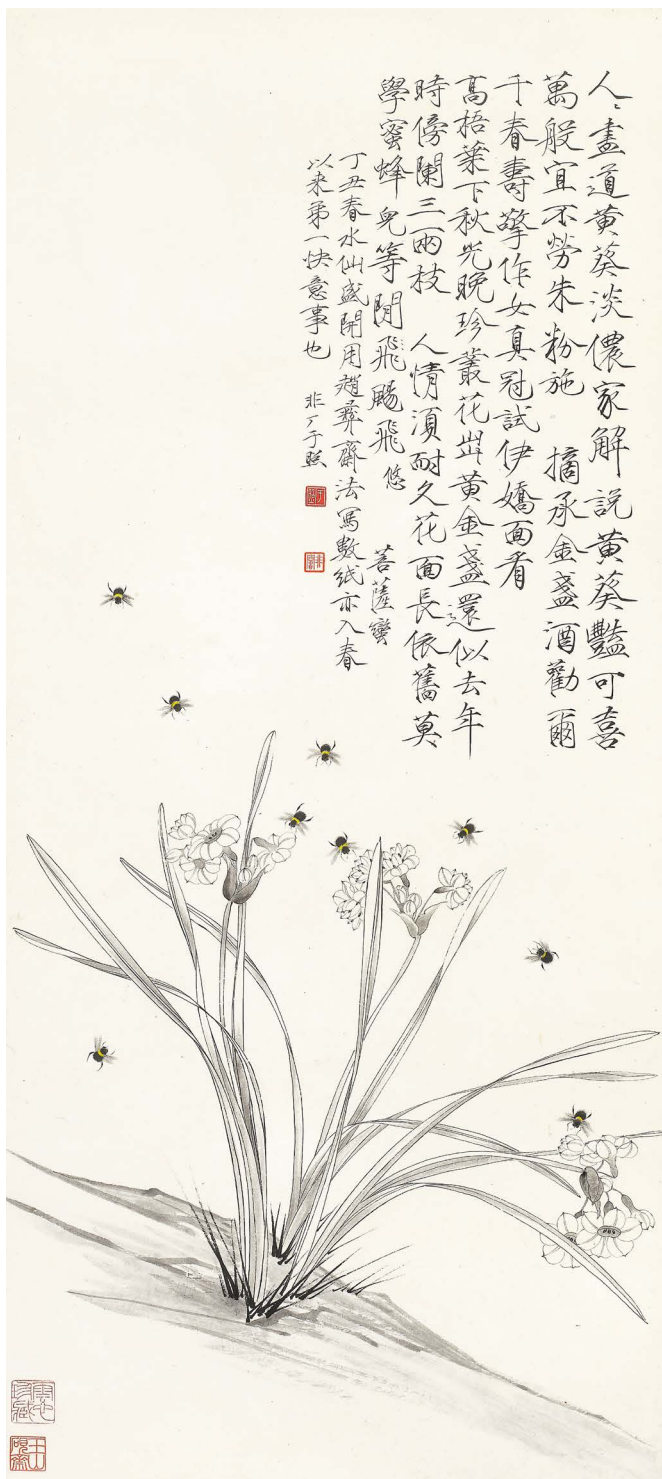 人〻盡道黄葵淡儂家解說黄葵豔可喜
萬般宜不勞朱粉施 摘承金盞酒勸爾
千春壽擎作女真冠試伊嬌面看
高梧葉下秋光晚珍叢花出黄金盞還似去年
時傍闌三兩枝 人情須耐久花面長依舊莫
學蜜蜂兒等閒飛颺飛悠 菩薩蠻
丁丑春水仙盛開用趙彞齋法寫數紙亦入春
以來第一快意事也 非厂于照